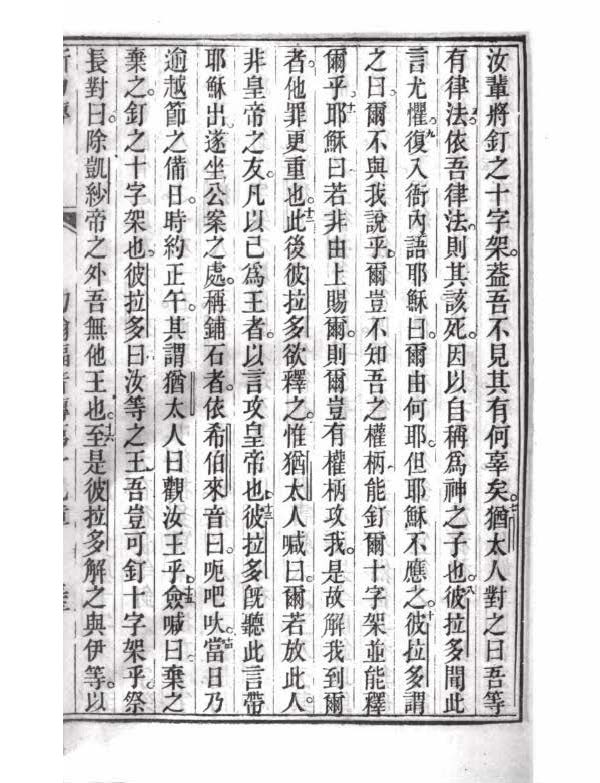 汝輩將釘之十字架。葢吾不見其有何辜矣。七猶太人對之曰吾等
有律法。依吾律法。則其該死。因以自稱爲神之子也。八彼拉多聞此
言尤懼。九復入衙內語耶穌曰。爾由何耶。但耶穌不應之。十彼拉多謂
之曰。爾不與我說乎。爾豈不知吾之權柄能釘爾十字架並能釋
爾乎。十一耶穌曰若非由上賜爾。則爾豈有權柄攻我。是故解我到爾
者。他罪更重也。十二此後彼拉多欲釋之。惟猶太人喊曰。爾若放此人。
非皇帝之友。凡以己爲王者。以言攻皇帝也。十三彼拉多旣聽此言帶
耶穌出。遂坐公案之處。稱鋪石者。依希伯來音曰。呃吧吠。十四當日乃
逾越節之備日。時約正午。其謂猶太人曰觀汝王乎。十五僉喊曰棄之
棄之。釘之十字架也。彼拉多曰汝等之王。吾豈可釘十字架乎。祭
長對曰。除凱紗帝之外吾無他王也。十六至是彼拉多解之與伊等。以